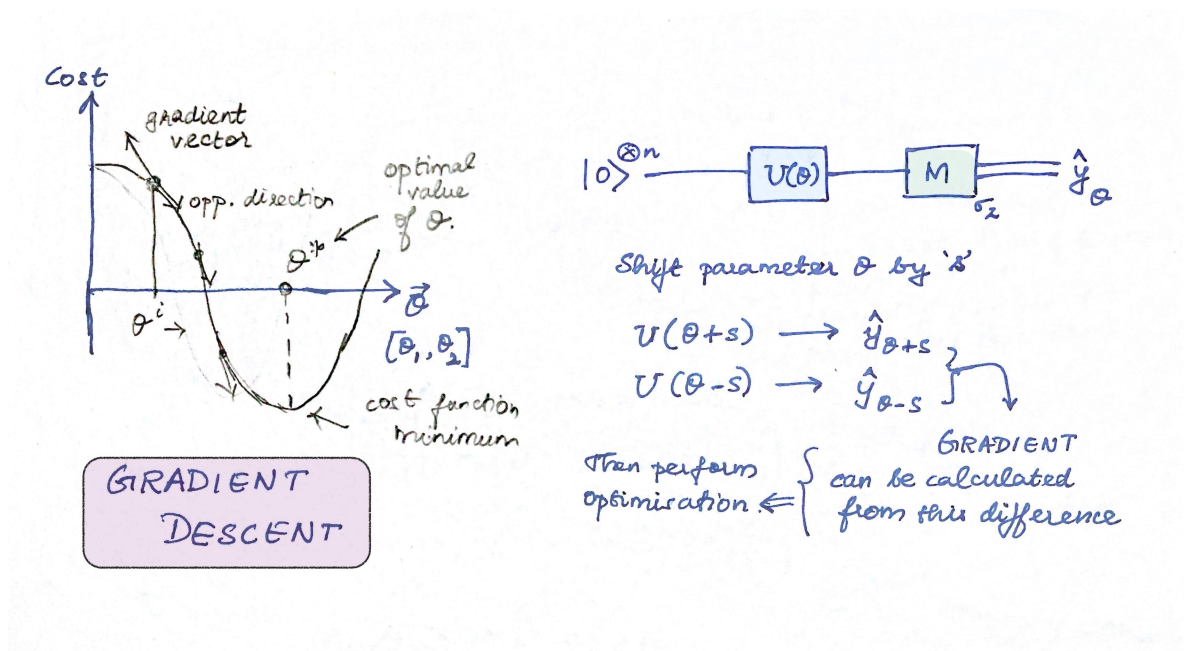 Cost
gradient
vector
opp. direction
optimal
value
of θ.
θ^*
θ^i →
θ⃗
[θ₁, θ₂]
cost function
minimum
GRADIENT
DESCENT
|0⟩^⊗n U(θ) M σ_z ŷ_θ
Shift parameter θ by 's'
U(θ+s) → ŷ_θ+s
U(θ-s) → ŷ_θ-s
GRADIENT
can be calculated
from this difference
Then perform
optimisation. ⇐